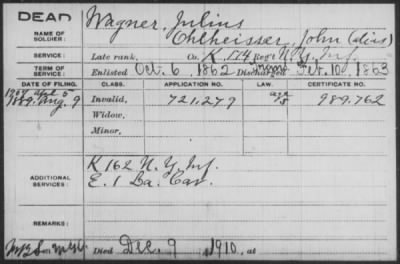 DEAD
NAME OF SOLDIER: Wagner, Julius
Ohlheisser, John (alias)
SERVICE: Late rank, Co. K, 174 Reg't N.Y. Inf.
TERM OF SERVICE: Enlisted Oct. 6, 1862 Discharged Feb. 10, 1863
DATE OF FILING. CLASS. APPLICATION NO. LAW. CERTIFICATE NO.
1907 Apl 5
1889. Aug. 9 Invalid, 721.279 989.762
Widow,
Minor,
ADDITIONAL SERVICES: K 162 N.Y. Inf.
E. 1 La. Cav.
REMARKS:
Died Dec. 9, 1910, at